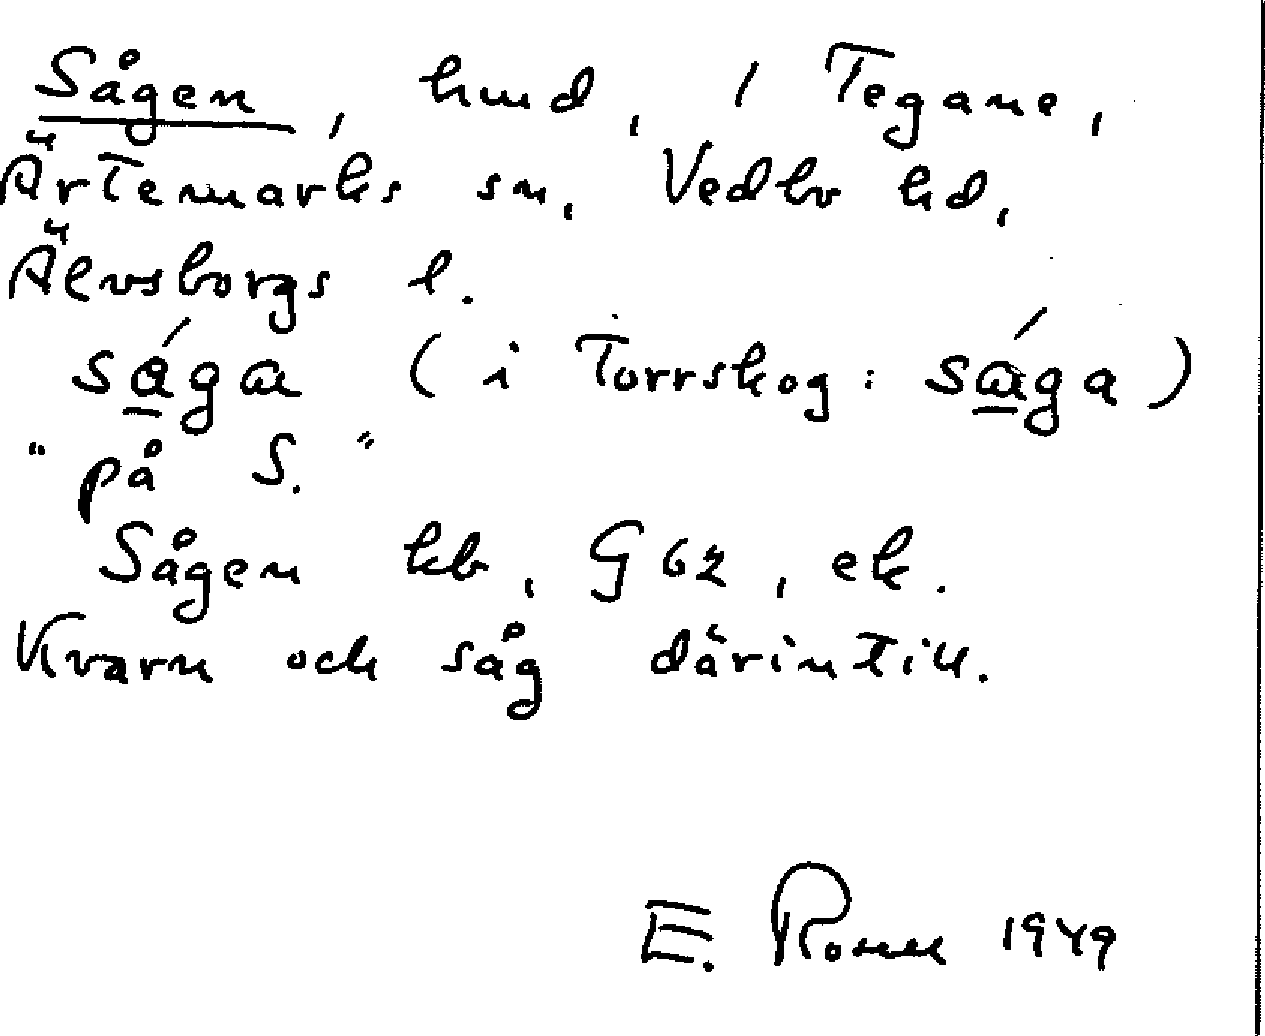 Sågen, hmd, i Tegane,
Ärtemarks sn, Vedbo hd,
Älvsborgs l.
sága (i Torrskog: sága)
"på S."
Sågen kb, G62, ek.
Kvarn och såg därintill.
E. Rosell 1949